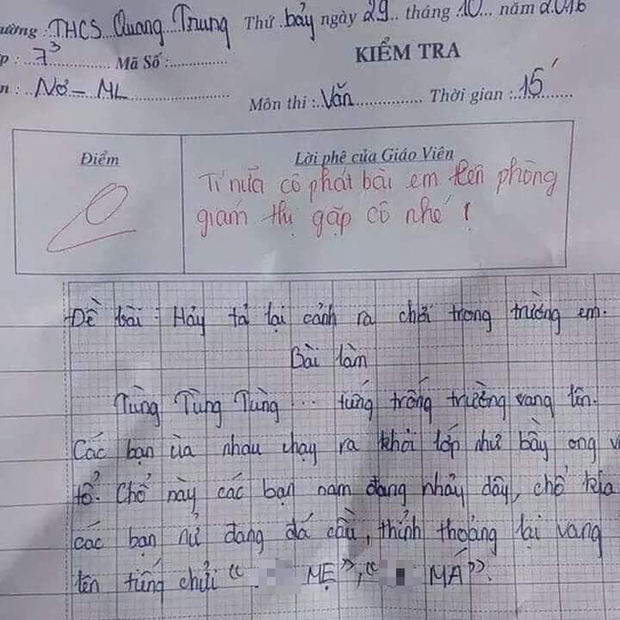 ường : THCS Quang Trung Thứ bảy ngày 29 tháng 10 năm 2016
p : 7³ Mã Số :
n : Nơ - ML
KIỂM TRA
Môn thi : Văn Thời gian : 15'
Điểm
Lời phê của Giáo Viên
Tí nữa cô phát bài em lên phòng
giám thị gặp cô nhé !
Đề bài : Hảy tả lại cảnh ra chơi trong trường em.
Bài làm
Tùng Tùng Tùng ... tiếng trống trường vang lên.
Các bạn ùa nhau chạy ra khỏi lớp như bầy ong v
tổ. Chổ này các bạn nam đang nhảy dây, chổ kia
các bạn nử đang đá cầu, thỉnh thoảng lại vang
lên tiếng chửi " MẸ", " MÁ".